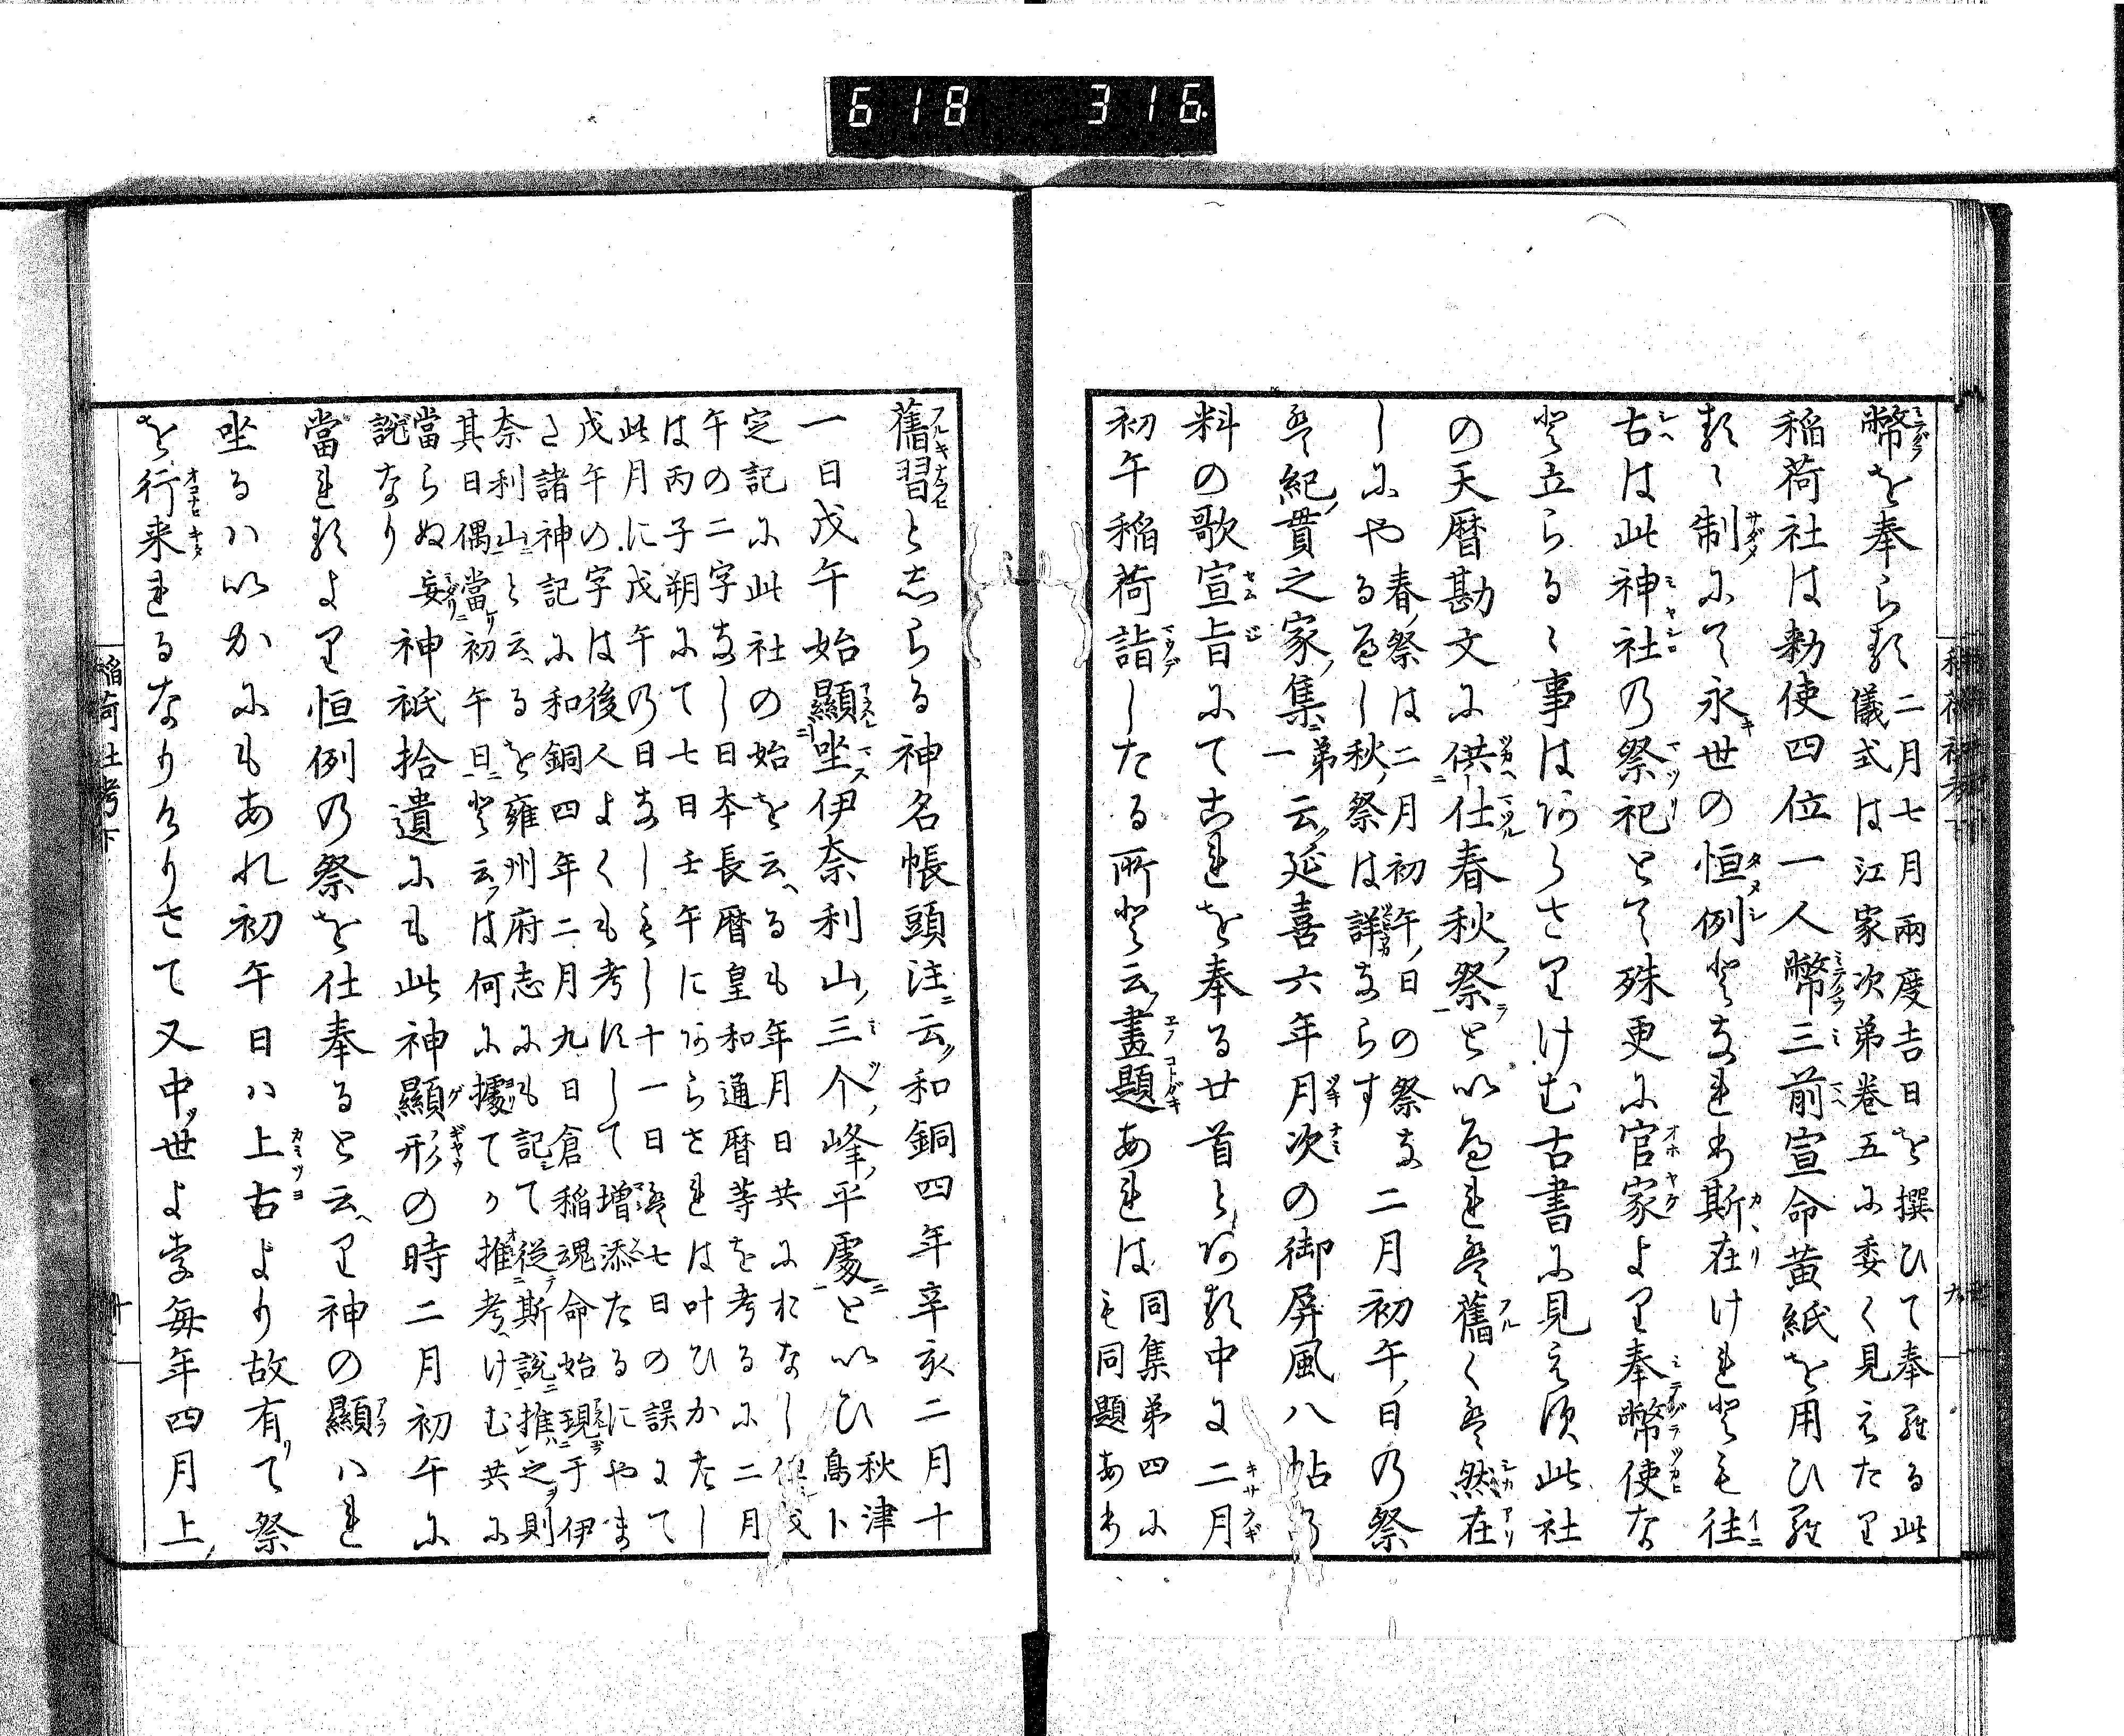 618 316
幣を奉らる二月七月兩度吉日を撰ひて奉る此
儀式は江家次第巻五に委く見えたり
稲荷社は勅使四位一人幣三前宣命黄紙を用ひ
るゝ制にて永世の恒例となれり斯在けれとも往
古は此神社の祭祀とて殊更に官家より奉幣使な
と立らるゝ事はあらさりけむ古書に見えす此社
の天暦勘文に供仕春秋祭といへれと舊くも然在
しにやあるへし春祭は二月初午日の祭な
秋祭は詳ならす二月初午日の祭
も紀貫之家集第一云延喜六年月次の御屏風八帖
料の歌宣旨にてこれを奉る廿首とある中に二月
初午稲荷詣したる所と云畫題あれは同集第四に
も同題あり
稲荷社考下
舊習としらる神名帳頭注云和銅四年辛亥二月十
一日戊午始顯坐伊奈利山三个峰平處といひ秋津
島卜
定記に此社の始を云へるも年月日共におなし
午の二字なし日本長暦皇和通暦等を考るに二月
は丙子朔にて七日壬午にあらされは叶ひかたし
此月に戊午の日なしもし十一日は七日の誤にて
戊午の字は後人よくも考すして増添たるにやま
た諸神記に和銅四年二月九日倉稲魂命始現于伊
奈利山と云るを雍州府志にも記て從斯説推之則
其日偶當初午日と云は何に據てか推考けむ共に
當らぬ妄説なり
神祇拾遺にも此神顯形の時二月初午に
當れるより恒例の祭を仕奉ると云へり神の顯はれ
坐るはいかにもあれ初午日は上古より故有て祭
を行来れるなりけりさて又中世よりは毎年四月上
稲荷社考下 十